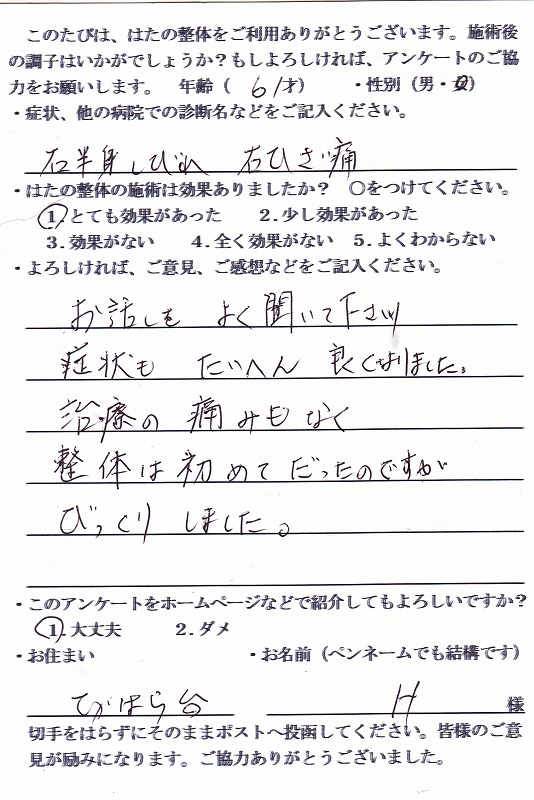 このたびは、はたの整体をご利用ありがとうございます。施術後
の調子はいかがでしょうか？もしよろしければ、アンケートのご協
力をお願いします。 年齢（ 61才） ・性別（男・女）
・症状、他の病院での診断名などをご記入ください。
右半身しびれ 右ひざ痛
・はたの整体の施術は効果ありましたか？ ○をつけてください。
1.とても効果があった 2.少し効果があった
3.効果がない 4.全く効果がない 5.よくわからない
・よろしければ、ご意見、ご感想などをご記入ください。
お話しを よく聞いて下さり
症状も たいへん 良くなりました。
治療の 痛みもなく
整体は初めてだったのですが
びっくりしました。
・このアンケートをホームページなどで紹介してもよろしいですか？
1.大丈夫 2.ダメ
・お住まい ・お名前（ペンネームでも結構です）
つがはら台 H 様
切手をはらずにそのままポストへ投函してください。皆様のご意
見が励みになります。ご協力ありがとうございました。